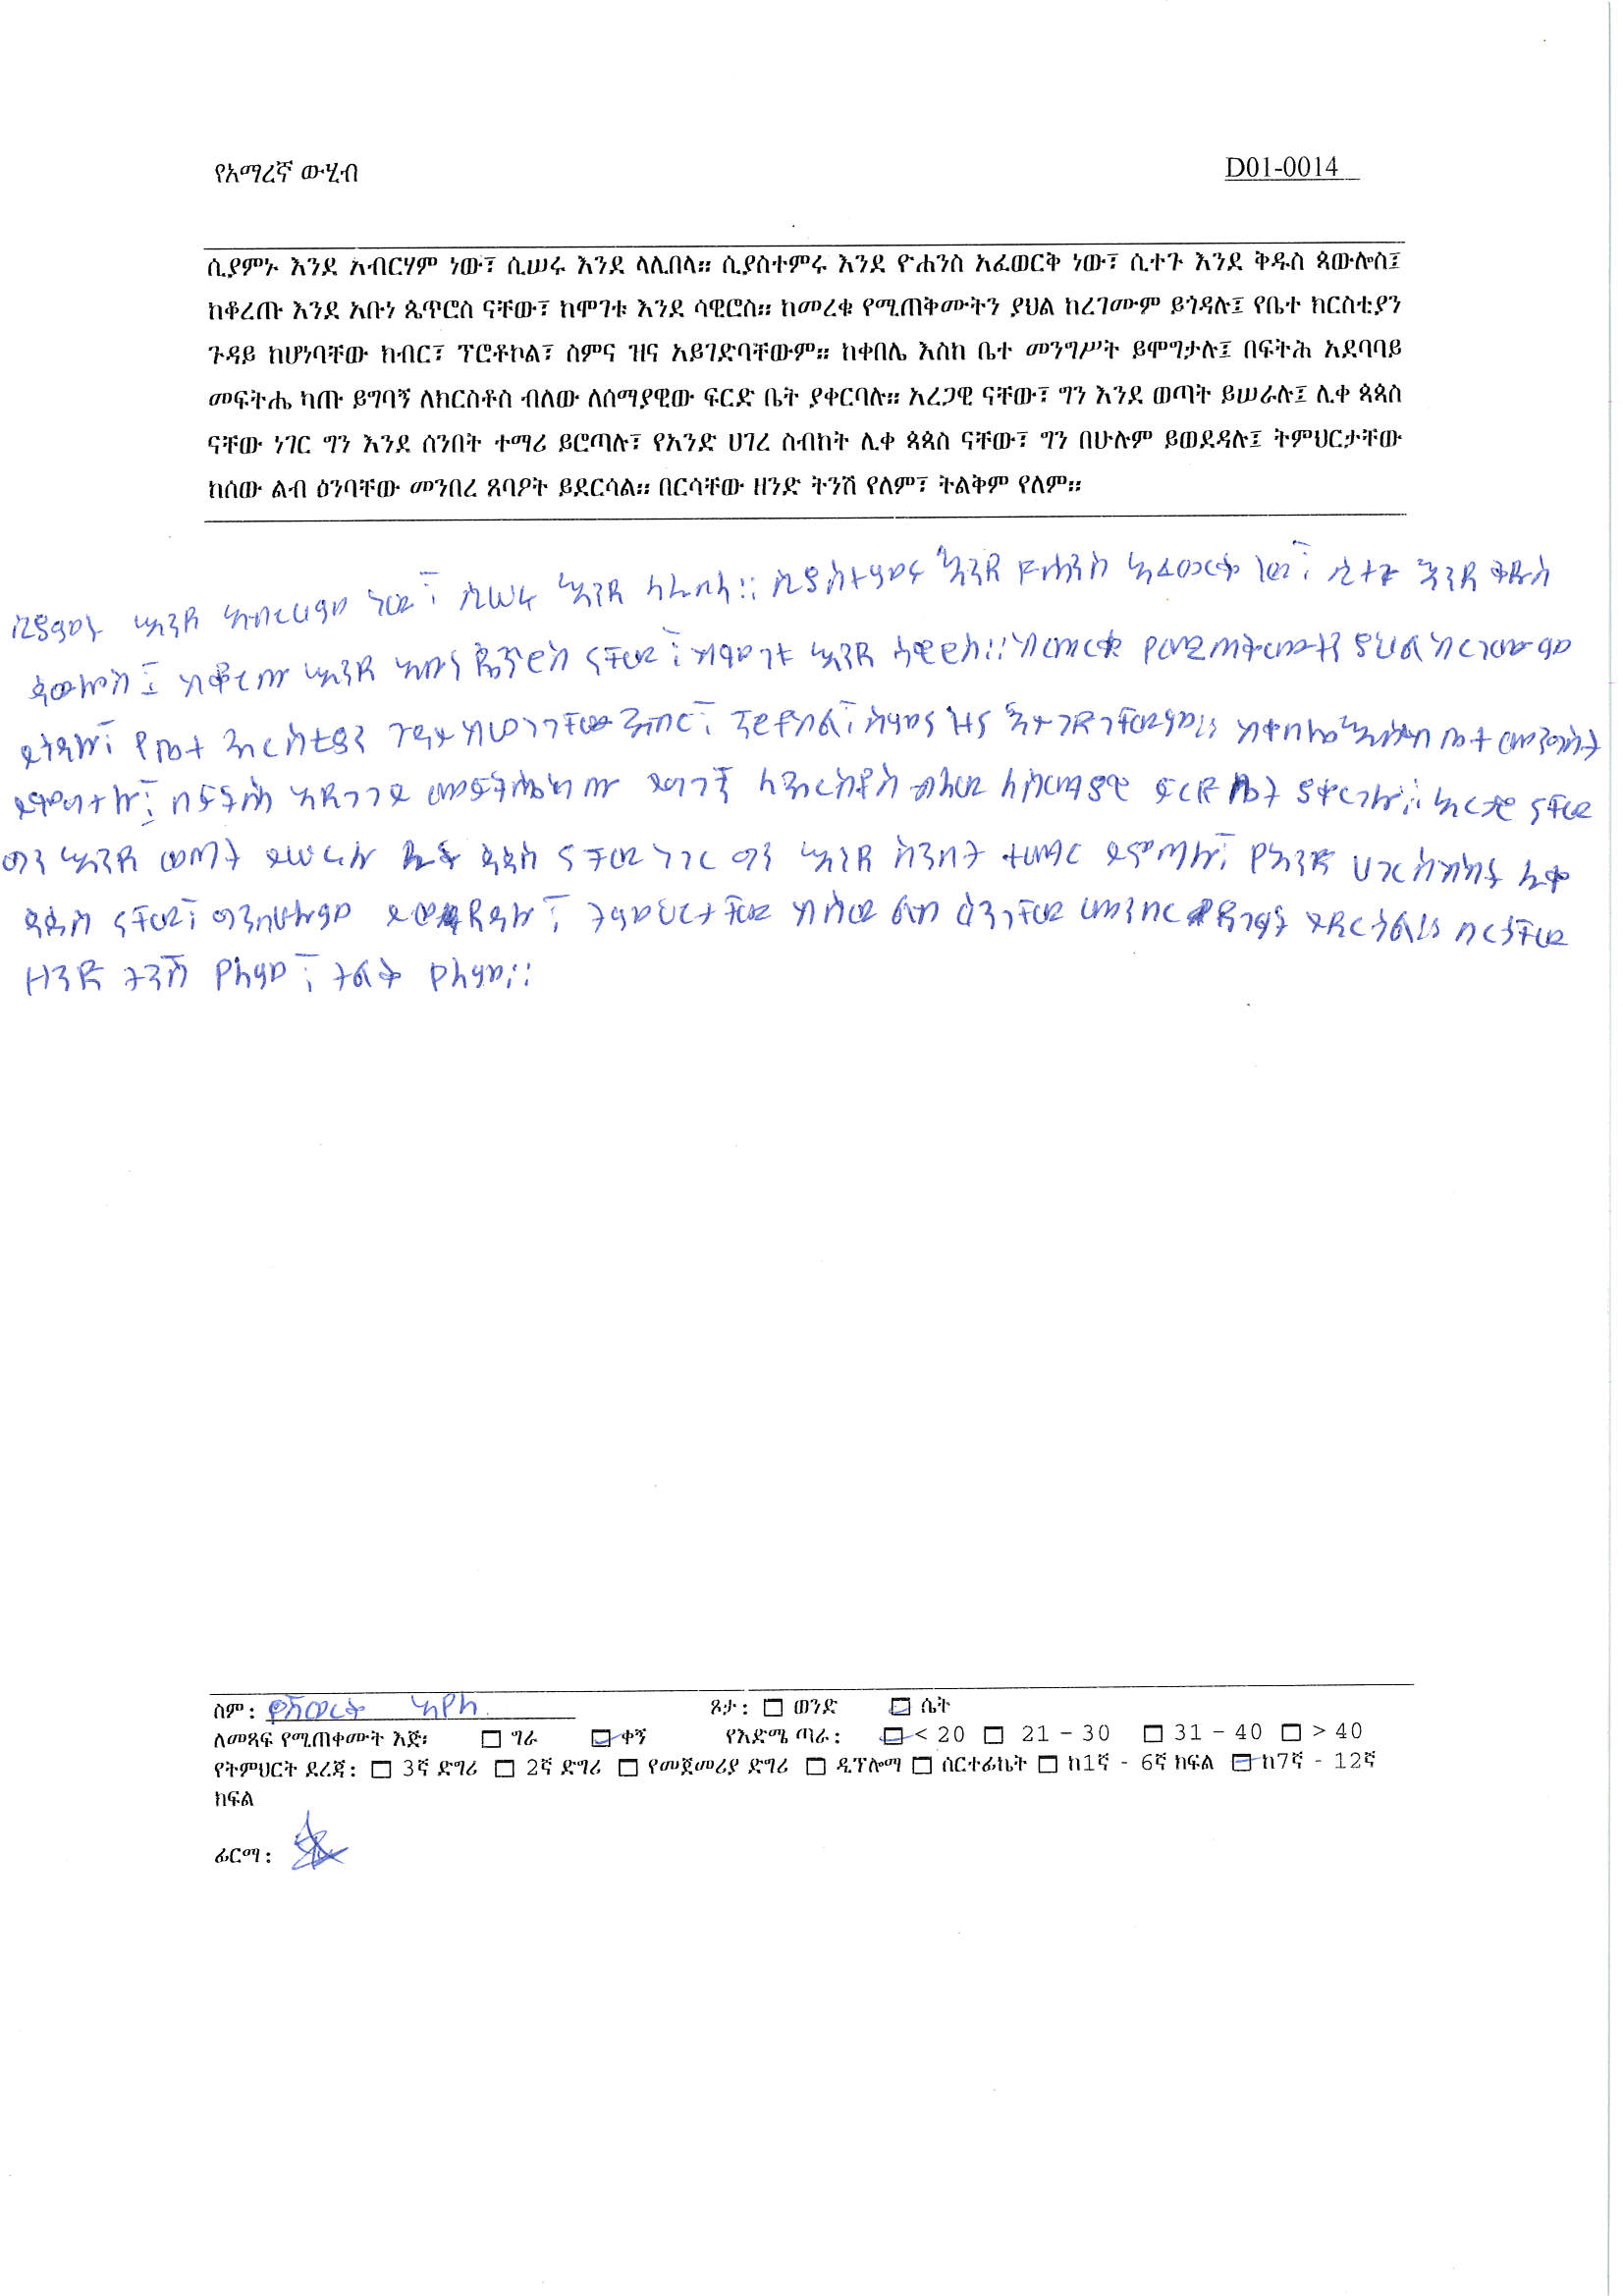 የአማረኛ ውሂብ
D01-0014
ሲያምኑ እንደ አብርሃም ነው፣ ሲሠሩ እንደ ላሊበላ። ሲያስተምሩ እንደ ዮሐንስ አፈወርቅ ነው፣ ሲተጉ እንደ ቅዱስ ጳውሎስ፤
ከቆረጡ እንደ አቡነ ጴጥሮስ ናቸው፣ ከሞገቱ እንደ ሳዊሮስ። ከመረቁ የሚጠቅሙትን ያህል ከረገሙም ይጎዳሉ፤ የቤተ ክርስቲያን
ጉዳይ ከሆነባቸው ክብር፣ ፕሮቶኮል፣ ስምና ዝና አይገድባቸውም። ከቀበሌ እስከ ቤተ መንግሥት ይሞግታሉ፤ በፍትሕ አደባባይ
መፍትሔ ካጡ ይግባኝ ለክርስቶስ ብለው ለሰማያዊው ፍርድ ቤት ያቀርባሉ። አረጋዊ ናቸው፣ ግን እንደ ወጣት ይሠራሉ፤ ሊቀ ጳጳስ
ናቸው ነገር ግን እንደ ሰንበት ተማሪ ይሮጣሉ፣ የአንድ ሀገረ ስብከት ሊቀ ጳጳስ ናቸው፣ ግን በሁሉም ይወደዳሉ፤ ትምህርታቸው
ከሰው ልብ ዕንባቸው መንበረ ጸባዖት ይደርሳል። በርሳቸው ዘንድ ትንሽ የለም፣ ትልቅም የለም።
ሲያምኑ እንደ አብርሀም ነው፣ ሲሠሩ እንደ ላሊበላ። ሲያስተምሩ እንደ ዮሐንስ አፈወርቅ ነው፣ ሲተጉ እንደ ቅዱስ
ጳውሎስ፤ ከቆረጡ እንደ አቡነ ጴጥሮስ ናቸው፣ ከሞገቱ እንደ ሳዊሮስ። ከመረቁ የሚጠቅሙትን ያህል ከረገሙም
ይጎዳሉ፣ የቤተ ክርስቲያን ጉዳይ ከሆነባቸው ክብር፣ ፕሮቶኮል፣ ስምና ዝና አይገድባቸውም። ከቀበሌ እስከ ቤተ መንግስት
ይሞግታሉ፤ በፍትሕ አደባባይ መፍትሔ ካጡ ይግባኝ ለክርስቶስ ብለው ለሰማያዊ ፍርድ ቤት ያቀርባሉ። ናቸው
ግን እንደ ወጣት ይሠራሉ ሊቀ ጳጳስ ናቸው ነገር ግን እንደ ሰንበት ተማሪ ይሮጣሉ፣ የአንድ ሀገረ ስብከት ሊቀ
ጳጳስ ናቸው፣ ግን በሁሉም ይወደዳሉ፣ ትምህርታቸው ከሰው ልብ ዕንባቸው መንበረ ይደርሳል። በርሳቸው
ዘንድ ትንሽ የለም፣ ትልቅ የለም።
ስም: የሽወርቅ አየለ ጾታ: ወንድ ሴት
ለመጻፍ የሚጠቀሙት እጅ፡ ግራ ቀኝ የእድሜ ጣራ: < 20 21 – 30 31 – 40 > 40
የትምህርት ደረጃ: 3ኛ ድግሪ 2ኛ ድግሪ የመጀመሪያ ድግሪ ዲፕሎማ ሰርተፊኬት ከ1ኛ - 6ኛ ክፍል ከ7ኛ - 12ኛ
ክፍል
ፊርማ: